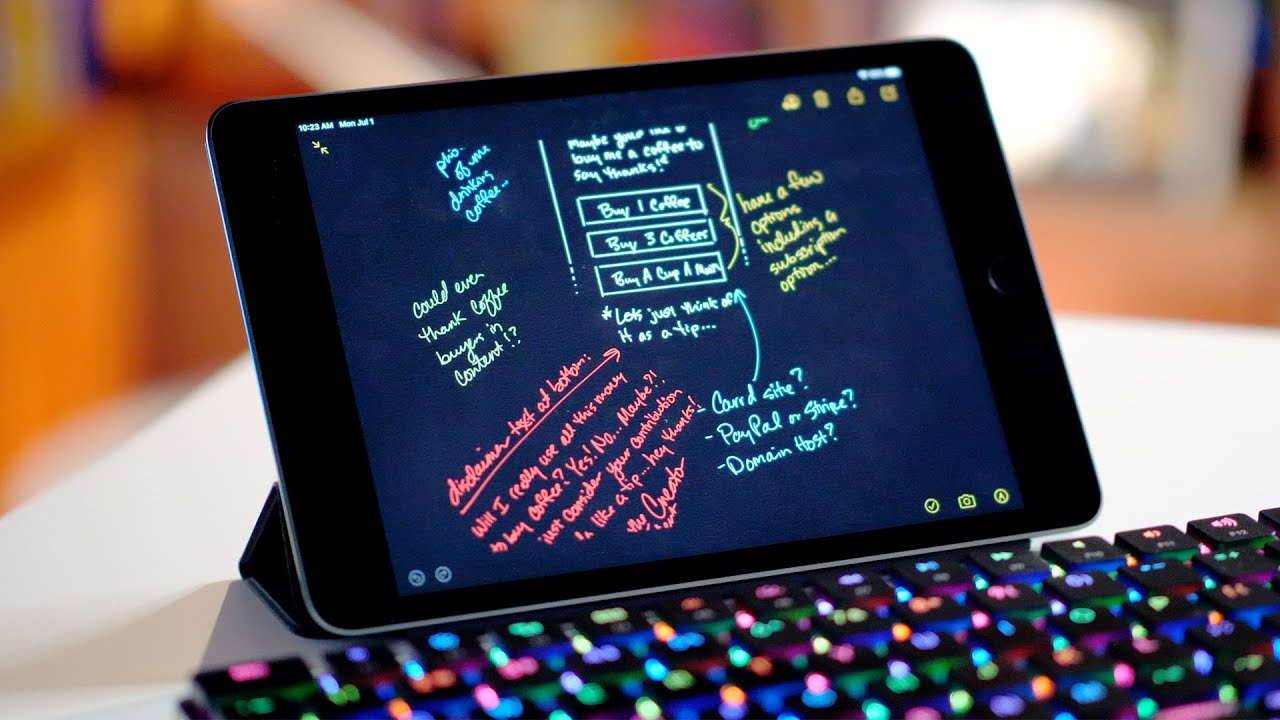 10:23 AM Mon Jul 1
pic.
of me
drinking
coffee...
Maybe you'd like to
buy me a coffee to
say thanks!
Buy 1 Coffee
Buy 3 Coffees
Buy A Cup A Month
have a few
options
including a
subscription
option...
could even
thank coffee
buyers in
content!?
*Lets just think of
it as a tip...
disclaimer text at bottom:
Will I really use all this money
to buy coffee? Yes! No... Maybe?!
just consider your contribution
like a tip... hey thanks!
the Creator
- Carrd site?
- PayPal or Stripe?
- Domain Host?
F11
F12